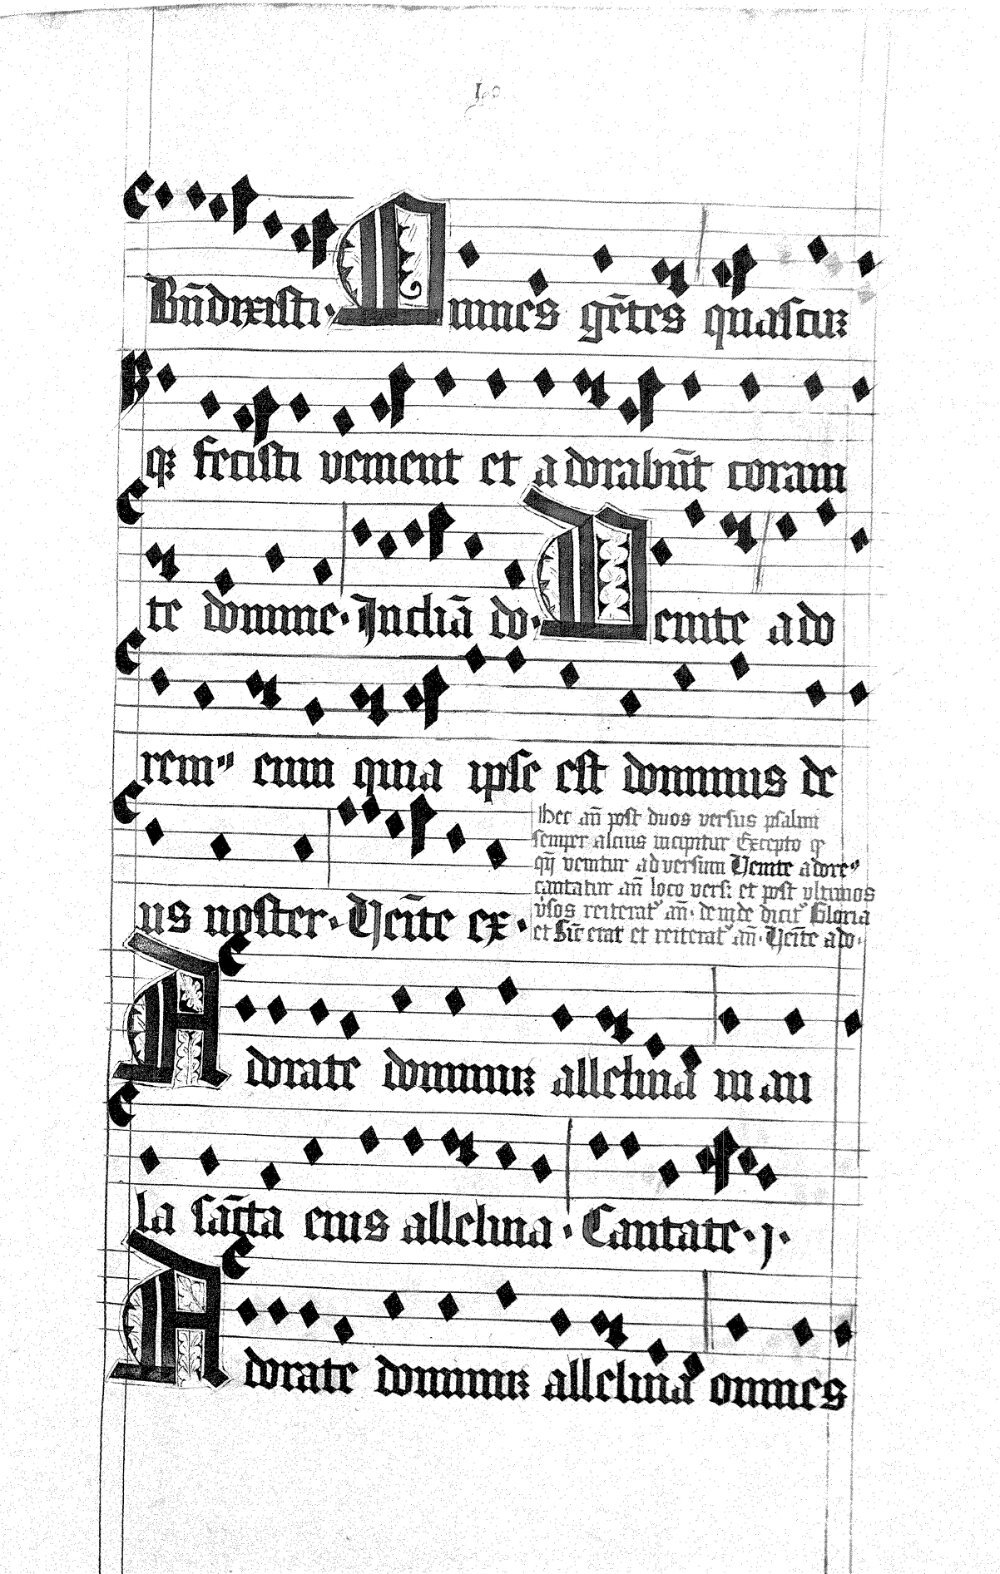 Bn̄dixisti· Omnes gētes quascūꝫ
qꝫ fecisti venient et adorabūt coram
te domine· Inclīā do· Uenite ado
rem" eum quia ipse est dominus de
us noster· Ueīte ex·
Hec an̄ post duos versus psalmi
semper alcius incipitur Excepto ꝙ
qn̄ venitur ad versum Uenite adore"
cantatur an̄ loco vers: et post vltimos
v̓sos reiterat᷑ an̄· deinde dicit᷑ Gloria
et Sic̄ erat et reiterat᷑ an̄· Ueīte ado·
Adorate dominuꝫ alleluia in au
la sāc̄ta eius alleluia· Cantate· j·
Adorate dominuꝫ alleluia omnes